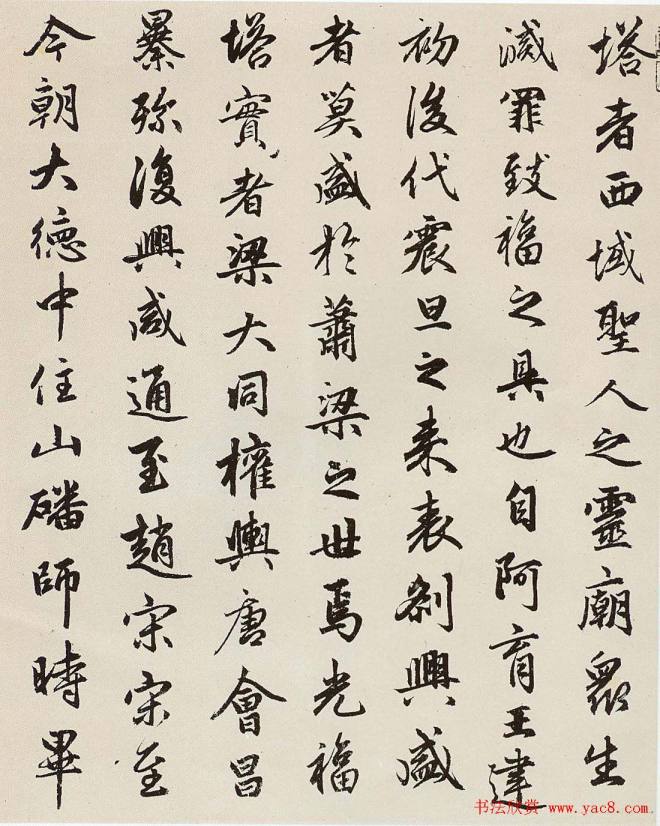 塔者西域聖人之靈廟眾生
滅罪致福之具也自阿育王建
初後代震旦之来表刹興盛
者莫盛於蕭梁之世焉光福
塔實者梁大同權輿唐會昌
暴殄復興咸通至趙宋宋至
今朝大德中住山磻師時畢
书法欣赏 www.yac8.com